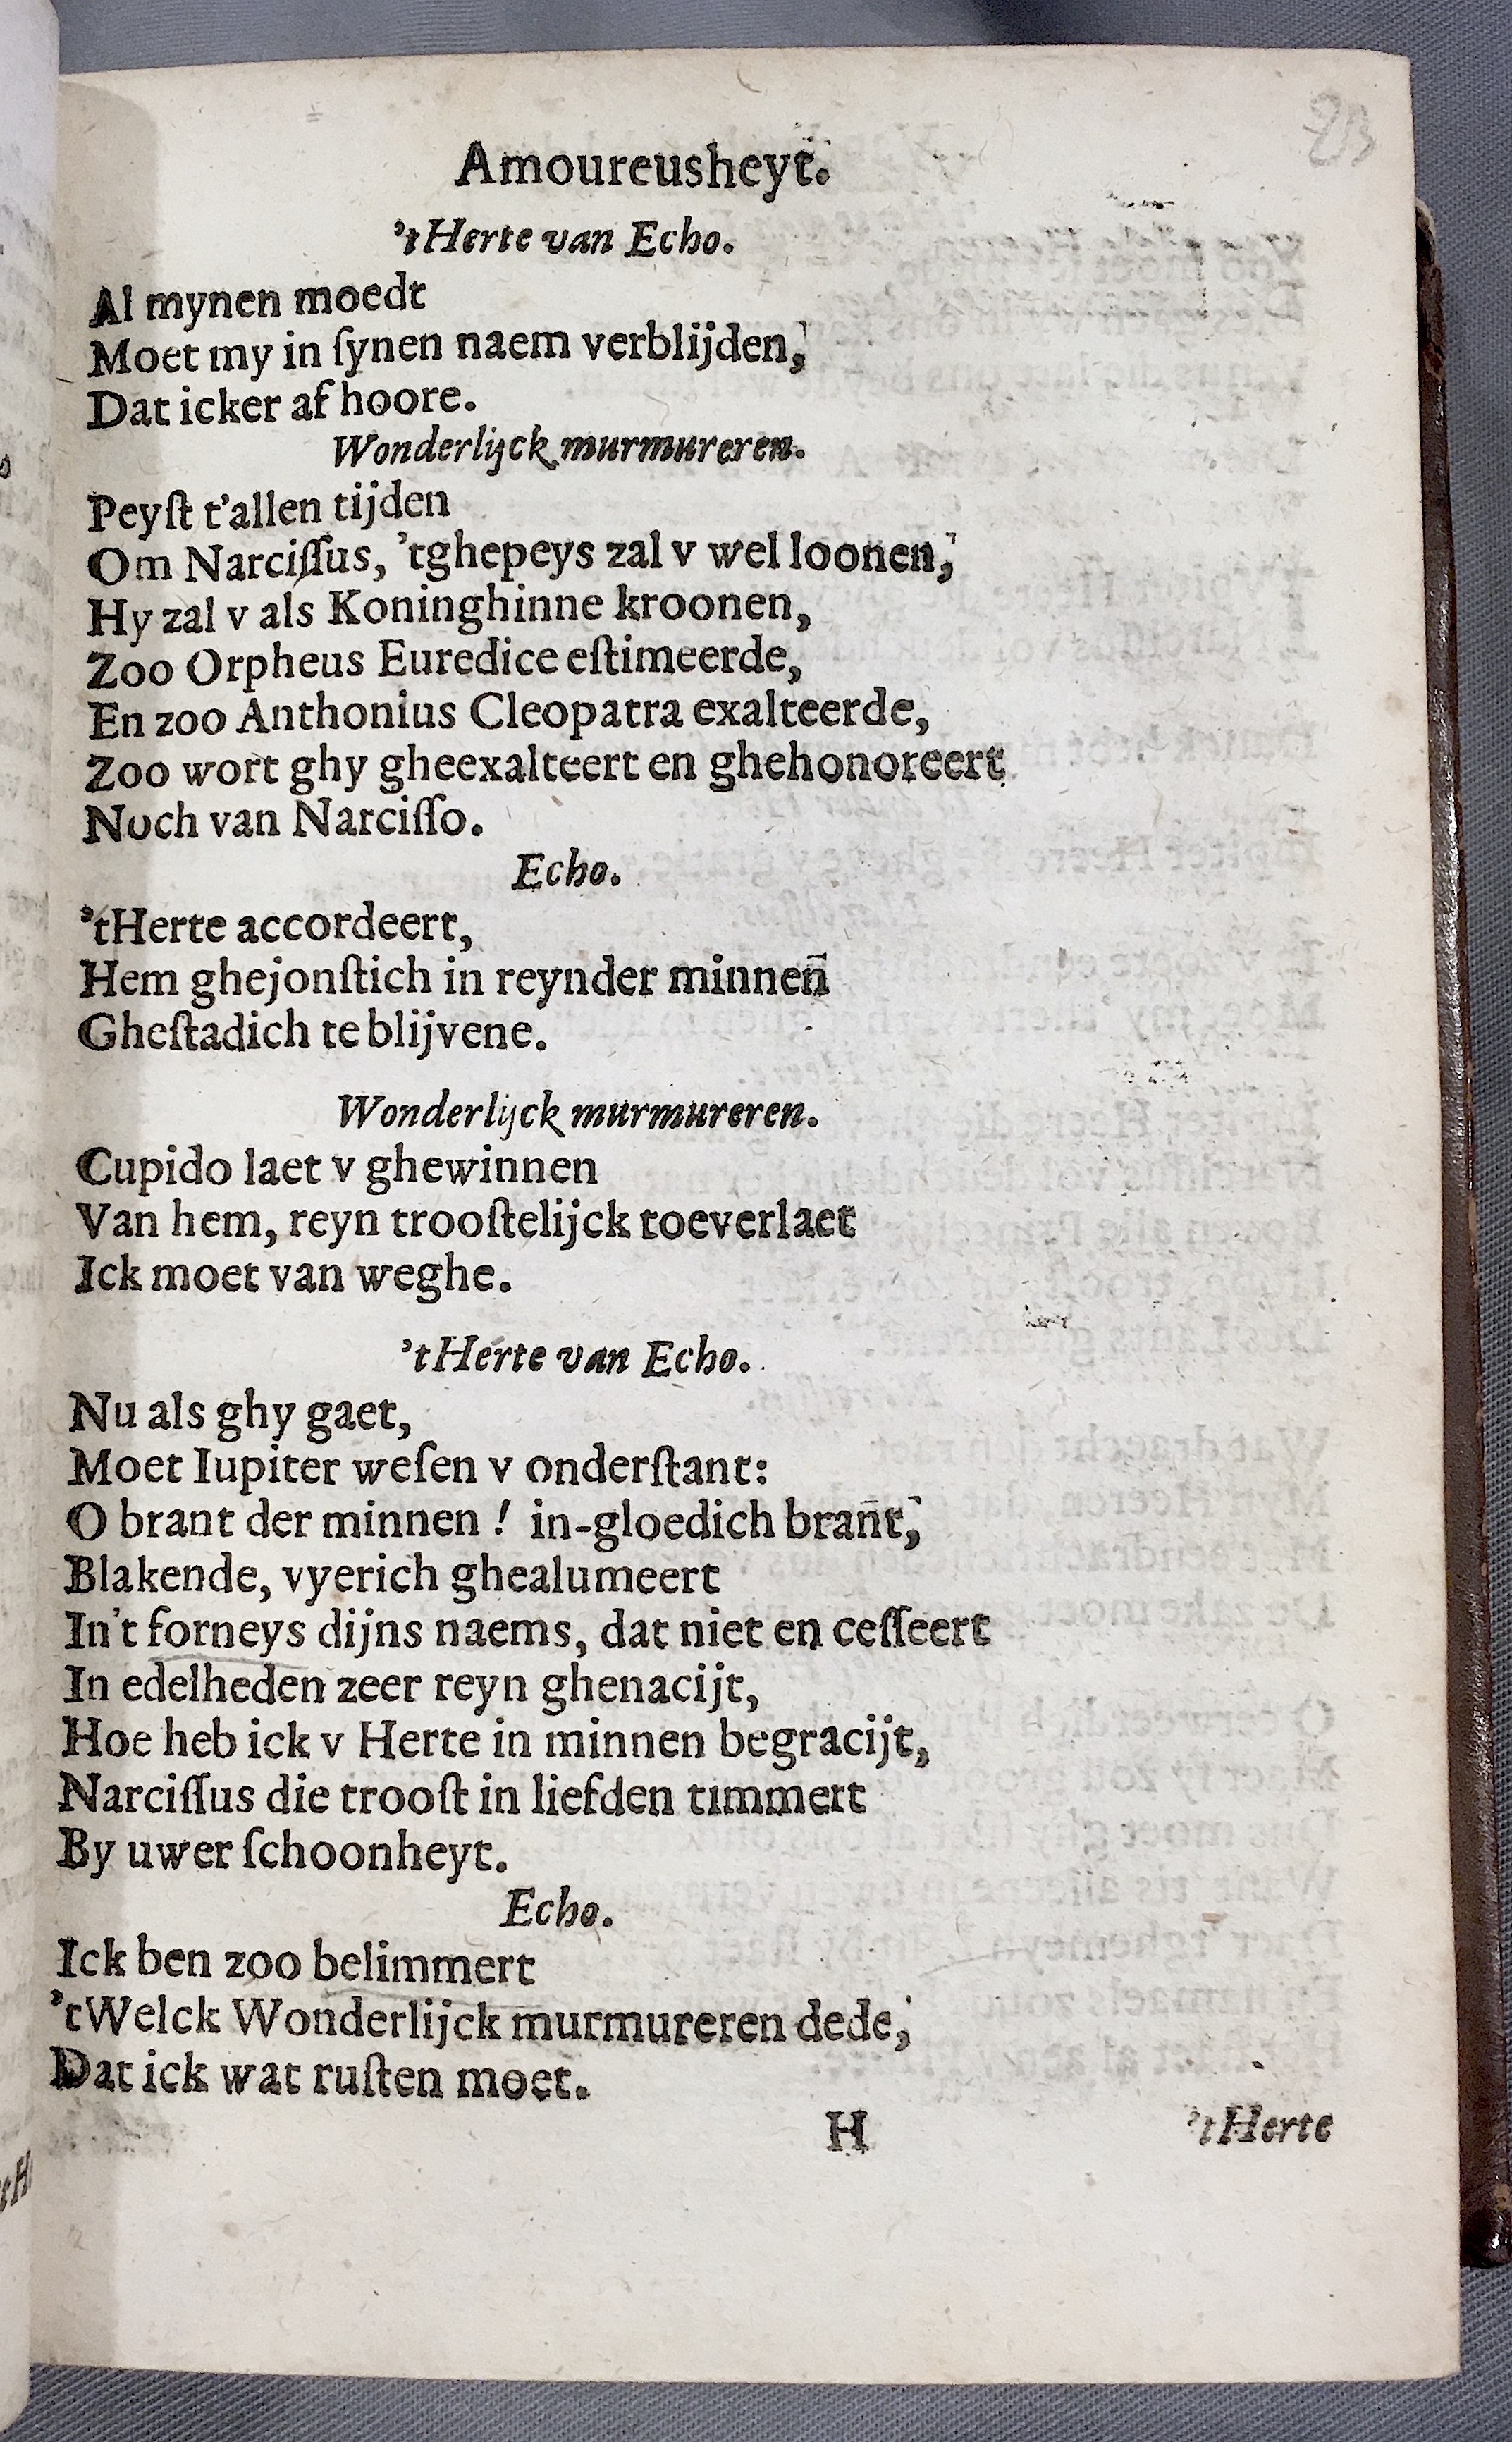 Amoureusheyt.
'tHerte van Echo.
Al mynen moedt
Moet my in ſynen naem verblijden,
Dat icker af hoore.
Wonderlijck murmureren.
Peyſt t'allen tijden
Om Narciſſus, 'tghepeys zal v wel loonen,
Hy zal v als Koninghinne kroonen,
Zoo Orpheus Euredice eſtimeerde,
En zoo Anthonius Cleopatra exalteerde,
Zoo wort ghy gheexalteert en ghehonoreert
Noch van Narciſſo.
Echo.
'tHerte accordeert,
Hem ghejonſtich in reynder minnen
Gheſtadich te blijvene.
Wonderlijck murmureren.
Cupido laet v ghewinnen
Van hem, reyn trooſtelijck toeverlaet
Ick moet van weghe.
'tHerte van Echo.
Nu als ghy gaet,
Moet Iupiter weſen v onderſtant:
O brant der minnen ! in-gloedich brant,
Blakende, vyerich ghealumeert
In't forneys dijns naems, dat niet en ceſſeert
In edelheden zeer reyn ghenacijt,
Hoe heb ick v Herte in minnen begracijt,
Narciſſus die trooſt in liefden timmert
By uwer ſchoonheyt.
Echo.
Ick ben zoo belimmert
'tWelck Wonderlijck murmureren dede,
Dat ick wat ruſten moet.
H 'tHerte